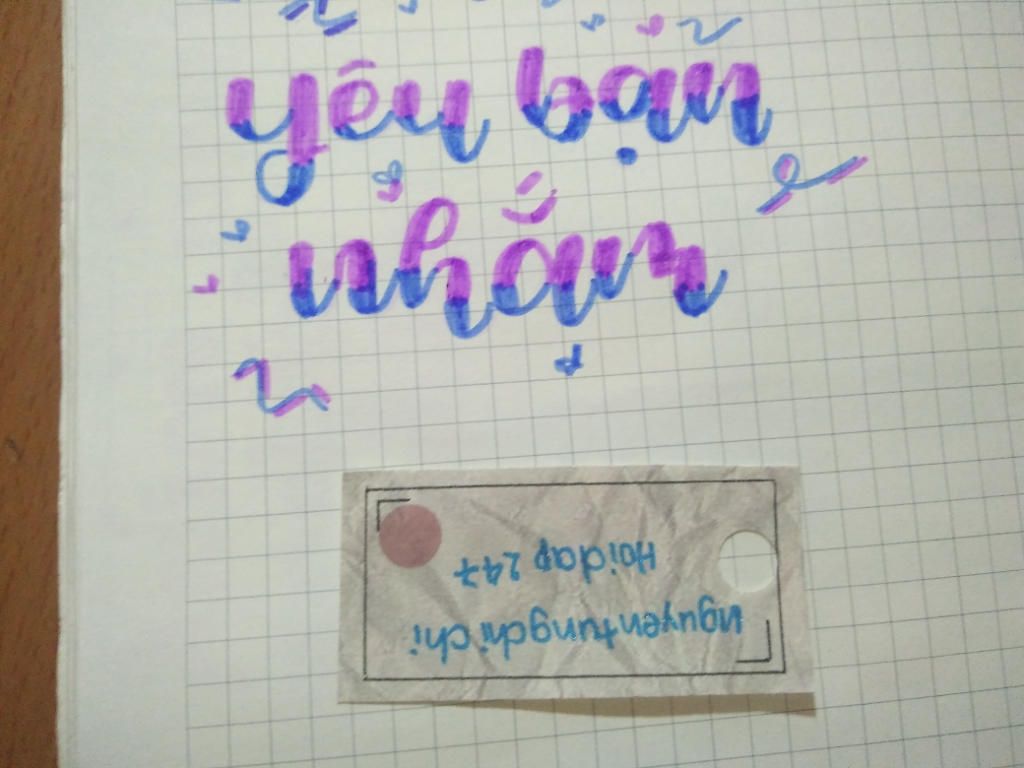 yêu bạn
nhắm
nguyentungchichi
Hoidap 247